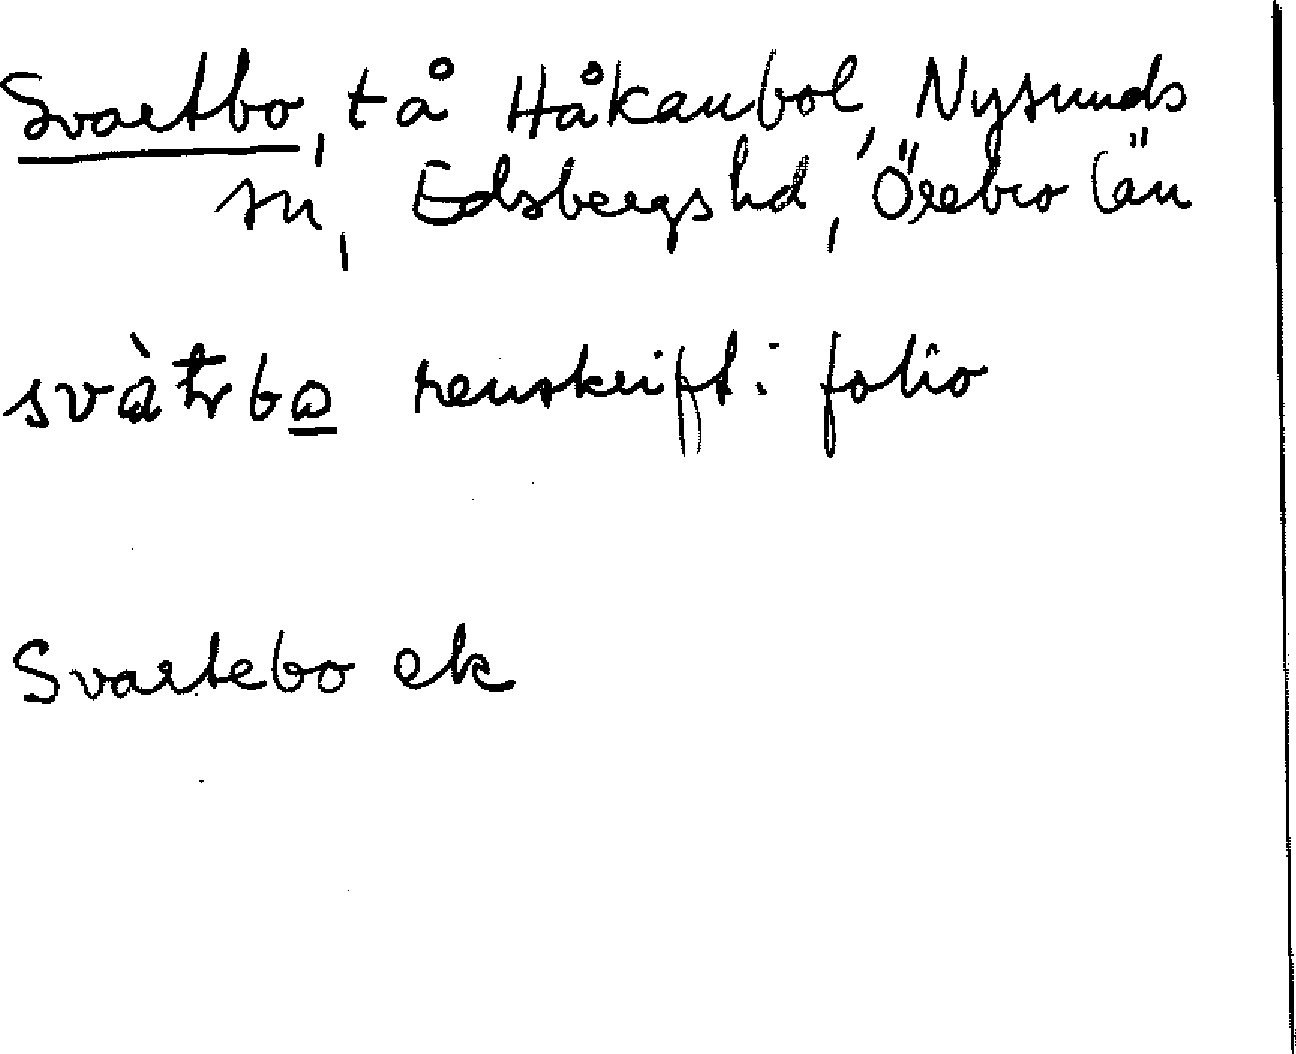 Svartbo, tå Håkanbol, Nysunds
sn, Edsbergs hd, Örebro län
renskrift i folio
Svartebo ek